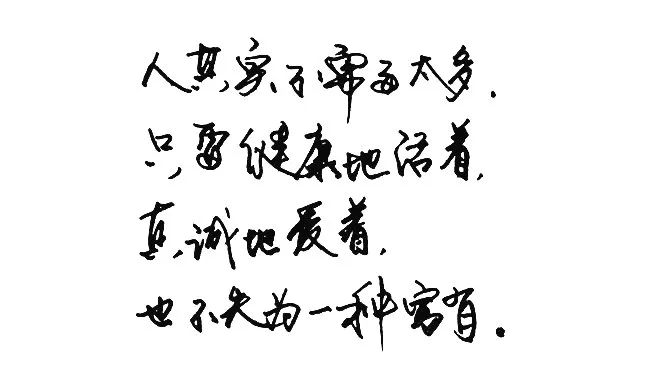 人其实不需要太多.
只要健康地活着,
真诚地爱着,
也不失为一种富有。